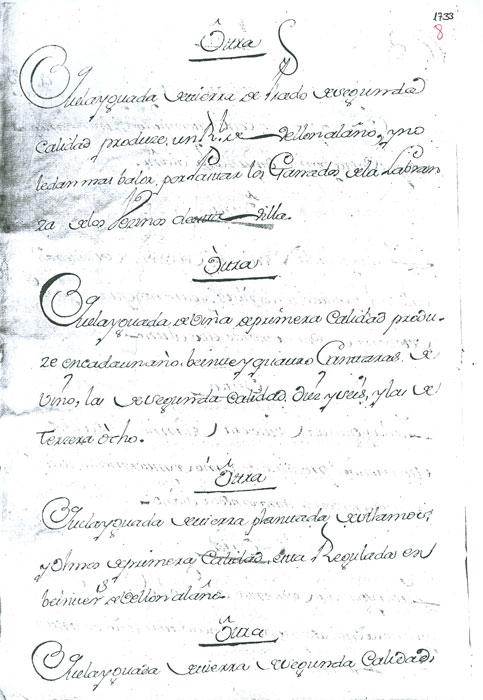 1733
8
Ôtra
Que la yguada de tierra de Prado de segunda
calidad produze, un R.l de Vellon al año, y no
le dan mas balor, por pastar los Ganados de la Labran
za de los Vecinos de esta Villa.
Ôtra
Que la yguada de Viña de primera Calidad produ-
ze en cada un año, beinte y quatro Cantaras, de
Vino, las de segunda Calidad, diez y seis, y las de
tercera ôcho.
Ôtra
Que la yguada de tierra plantada de Alamos,
y Olmos de primera Calidad, esta Regulada en
beinte r.s de Vellon al año.
Ôtra
Que la yguada de tierra de segunda Calidad,